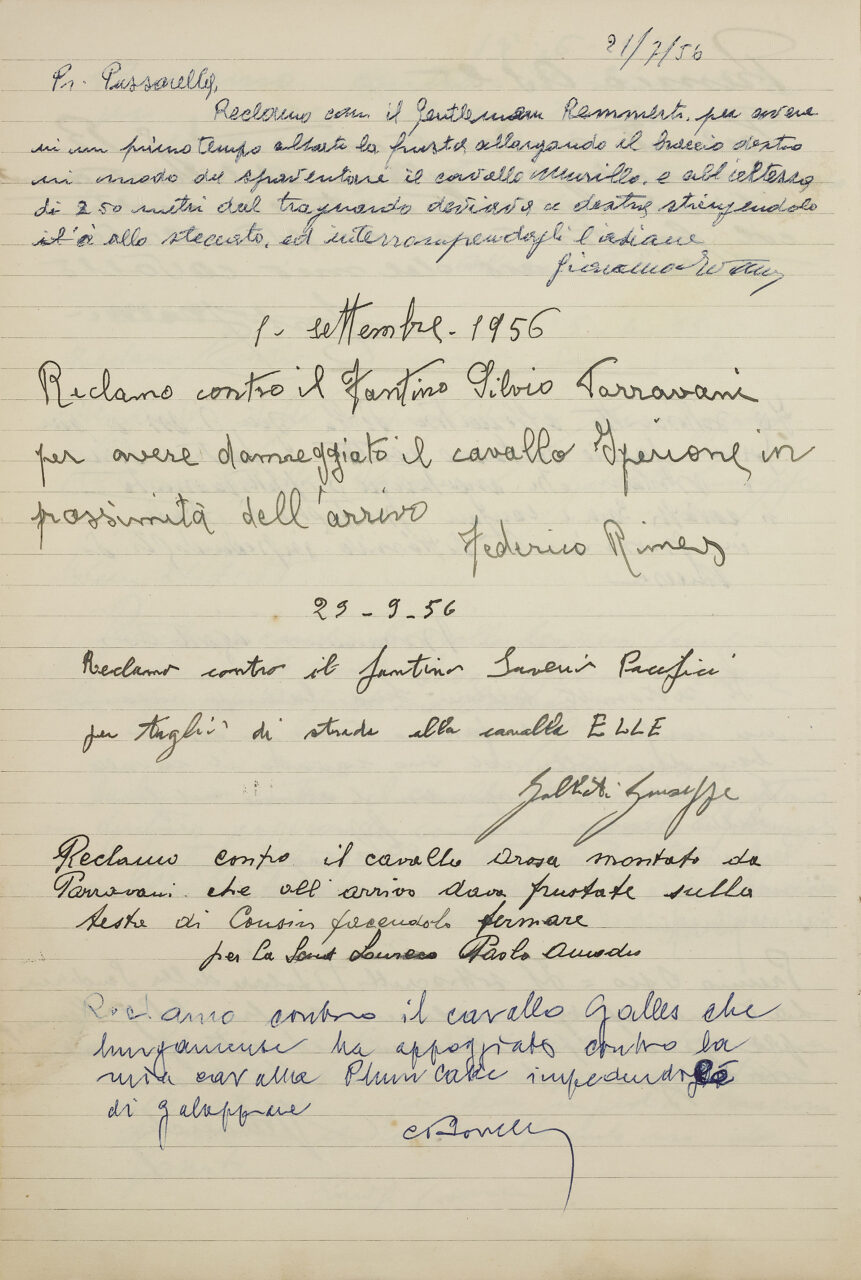 21/7/56
Pr. Passarella,
Reclamo con il Gentleman Rommerti per avere
in un primo tempo alzato la frusta allargando il braccio destro
in modo da spaventare il cavallo Murillo. e all'altezza
di 250 metri dal traguardo deviava a destra stringendolo
allo steccato, ed interrompendogli l'azione
1. settembre. 1956
Reclamo contro il Fantino Silvio Parravani
per avere danneggiato il cavallo Iperione, in
prossimità dell'arrivo
Federico Rimes
29-9-56
Reclamo contro il fantino Saverio Pacifici
per taglio di strada alla cavalla ELLE
Giuseppe
Reclamo contro il cavallo Arosa montato da
Parravani che all'arrivo dava frustate sulla
testa di Cousin facendolo fermare
per La Paolo Amedeo
Reclamo contro il cavallo Galles che
lungamente ha appoggiato contro la
mia cavalla Plum Cake impedendogle
di galoppare